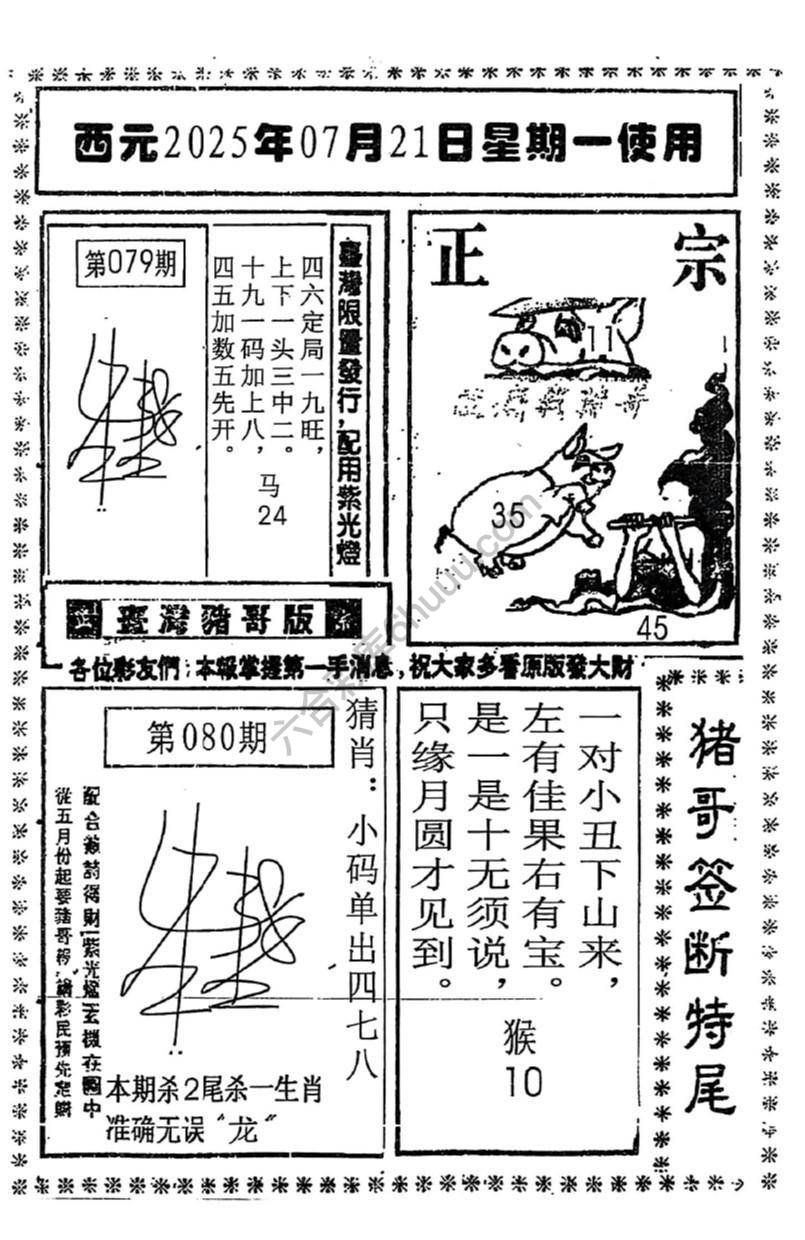 西元2025年07月21日星期一使用
第079期
四六定局一九旺，
上下一头三中二。
十九一码加上八，
四五加数五先开。
马
24
臺灣限量發行，配用紫光燈
正宗
11
35
45
臺灣豬哥版
各位彩友們：本報掌握第一手消息，祝大家多看原版發大財
第080期
猜肖：小码单出四七八
配合簽詩得財！紫光燈玄機在圖中
從五月份起要豬哥報，請彩民預先定購
本期杀2尾杀一生肖
准确无误“龙”
一对小丑下山来，
左有佳果右有宝。
是一是十无须说，
只缘月圆才见到。
猴
10
猪哥签断特尾
六合彩库6huuu.com